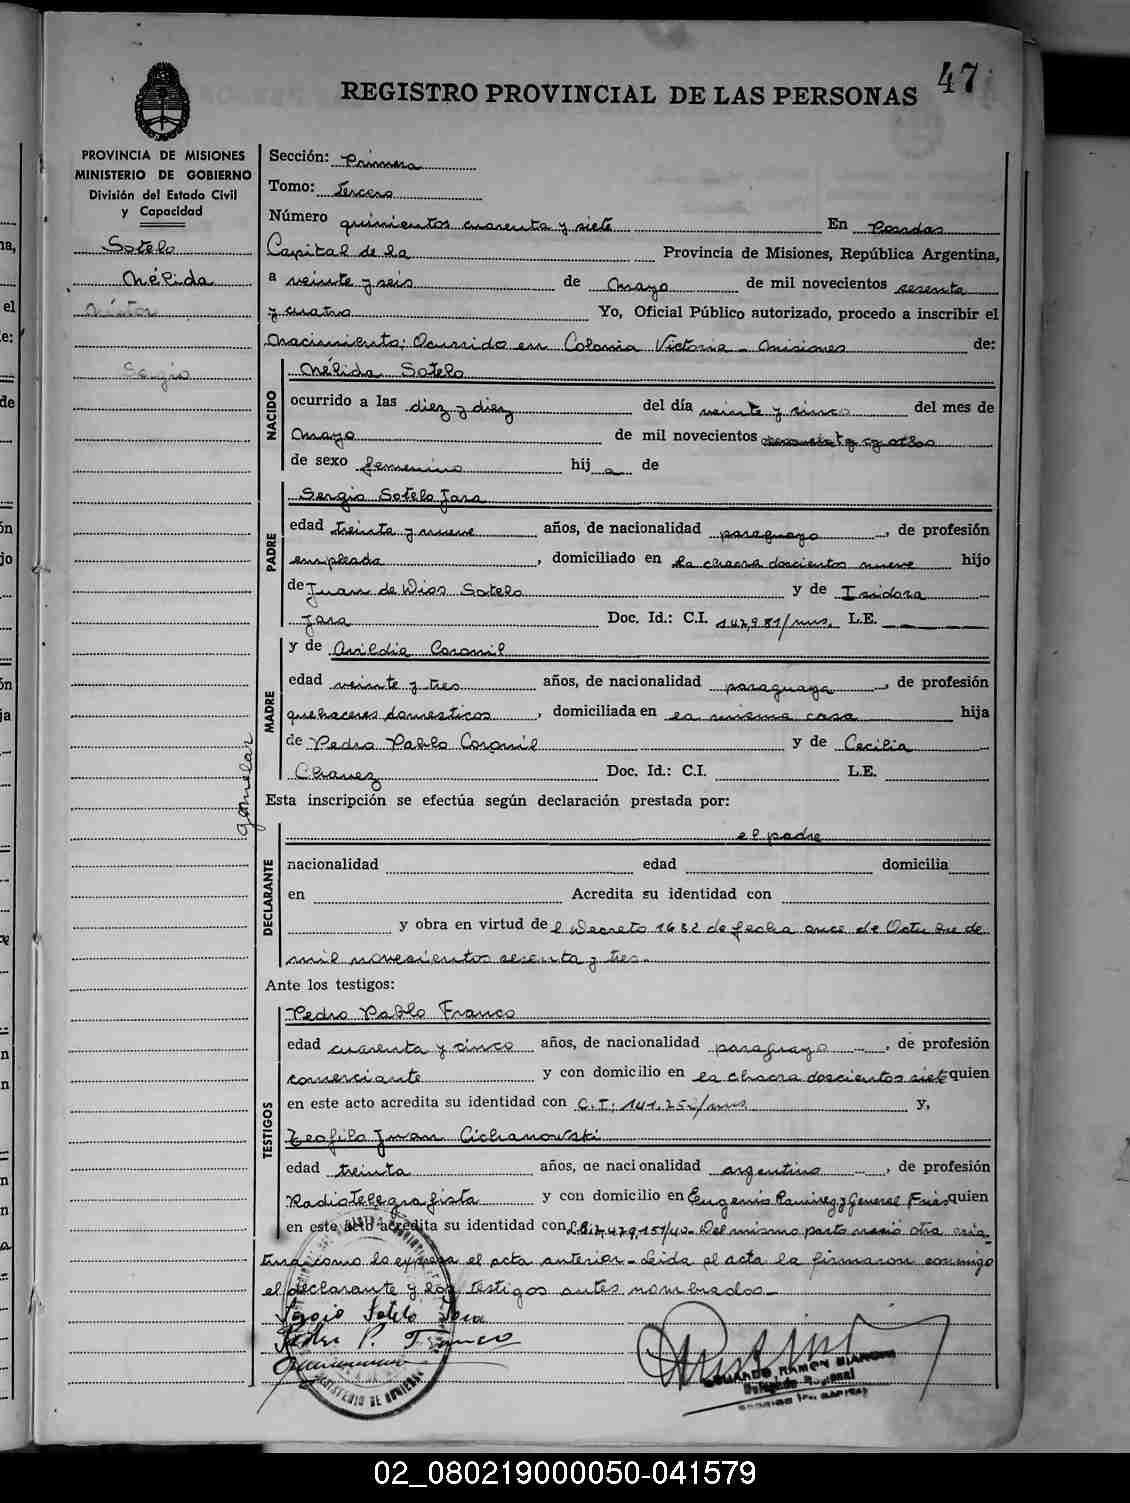 47
REGISTRO PROVINCIAL DE LAS PERSONAS
PROVINCIA DE MISIONES
MINISTERIO DE GOBIERNO
División del Estado Civil
y Capacidad
Sotelo
Nélida
Sergio
gemelar
Sección: Primera
Tomo: Tercero
Número quinientos cuarenta y siete En Posadas
Capital de la Provincia de Misiones, República Argentina,
a veinte y seis de mayo de mil novecientos sesenta
y cuatro Yo, Oficial Público autorizado, procedo a inscribir el
nacimiento: Ocurrido en Colonia Victoria - Misiones de:
NACIDO
Nélida Sotelo
ocurrido a las diez y diez del día veinte y cinco del mes de
mayo de mil novecientos
de sexo femenino hija de
PADRE
Sergio Sotelo Jara
edad treinta y nueve años, de nacionalidad paraguayo, de profesión
empleado, domiciliado en la chacra doscientos nueve hijo
de Juan de Dios Sotelo y de Isidora
Jara Doc. Id.: C.I. 147,981/mns. L.E.
MADRE
y de Coronil
edad veinte y tres años, de nacionalidad paraguaya, de profesión
quehaceres domesticos, domiciliada en la misma casa hija
de Pedro Pablo Coronil y de Cecilia
Chavez Doc. Id.: C.I. L.E.
Esta inscripción se efectúa según declaración prestada por:
DECLARANTE
el padre
nacionalidad edad domicilia
en Acredita su identidad con
y obra en virtud del Decreto 1632 de fecha once de Octubre de
mil novecientos sesenta y tres.
Ante los testigos:
TESTIGOS
Pedro Pablo Franco
edad cuarenta y cinco años, de nacionalidad paraguayo, de profesión
comerciante y con domicilio en la chacra doscientos siete quien
en este acto acredita su identidad con C.I: y,
Teofilo Juan Cichanowski
edad treinta años, de nacionalidad argentino, de profesión
Radiotelegrafista y con domicilio en Eugenio Ramirez y General Frias quien
en este acto acredita su identidad con Del mismo parto nació otra cria-
tura como lo expresa el acta anterior - Leida el acta la firmaron conmigo
el declarante y los testigos antes nombrados -
Sergio Sotelo Jara
Pedro P. Franco
MINISTERIO DE GOBIERNO
EDUARDO RAMON BIANCHI
Delegado Regional
02_080219000050-041579